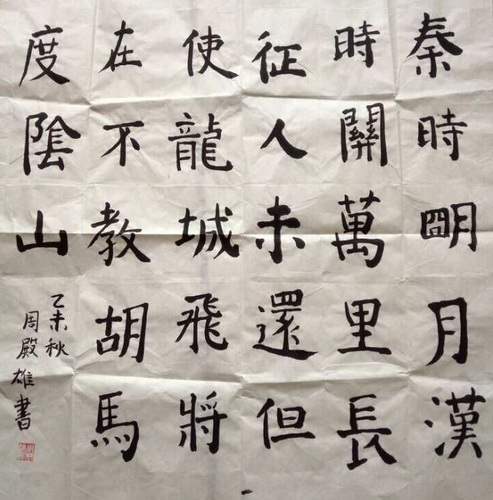 秦時朙月漢
時關萬里長
征人未還但
使龍城飛將
在不教胡馬
度陰山
乙未秋
周殿雄書